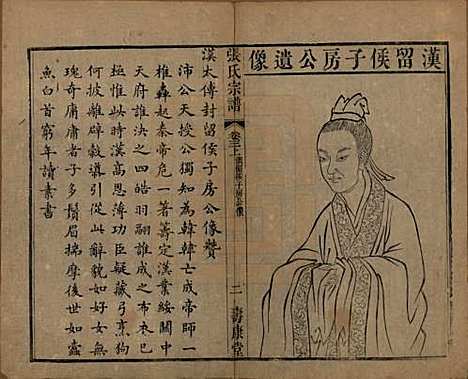 漢留侯子房公遺像
張氏宗譜
卷三上
二
壽康堂
漢太傅封留侯子房公像贊
沛公天授公獨知為韓韓亡成帝師一
椎轟起秦帝危一著籌定漢業綏關中
天府誰決之四皓羽翮誰成之布衣已
極惟此時漢高恩薄功臣疑藏弓烹狗
何披離辟穀導引從此辭貌如婦女無
瑰奇庸庸者子多鬚眉揣摩後世如蠹
魚白首窮年讀素書